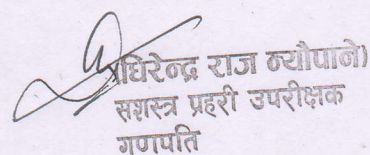 धिरेन्द्र राज न्यौपाने)
सशस्त्र प्रहरी उपरीक्षक
गणपति